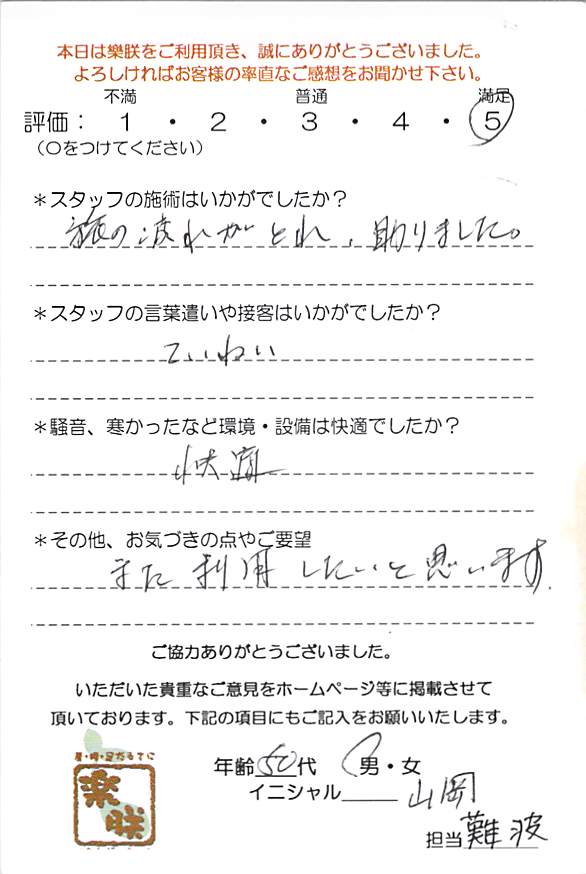 本日は樂朕をご利用頂き、誠にありがとうございました。
よろしければお客様の率直なご感想をお聞かせ下さい。
不満 普通 満足
評価： 1 ・ 2 ・ 3 ・ 4 ・ 5
（○をつけてください）
＊スタッフの施術はいかがでしたか？
旅の疲れがとれ、助りました。
＊スタッフの言葉遣いや接客はいかがでしたか？
ていねい
＊騒音、寒かったなど環境・設備は快適でしたか？
快適
＊その他、お気づきの点やご要望
また利用したいと思います.
ご協力ありがとうございました。
いただいた貴重なご意見をホームページ等に掲載させて
頂いております。下記の項目にもご記入をお願いいたします。
年齢 50 代 男・女
イニシャル 山岡
担当 難波
楽朕